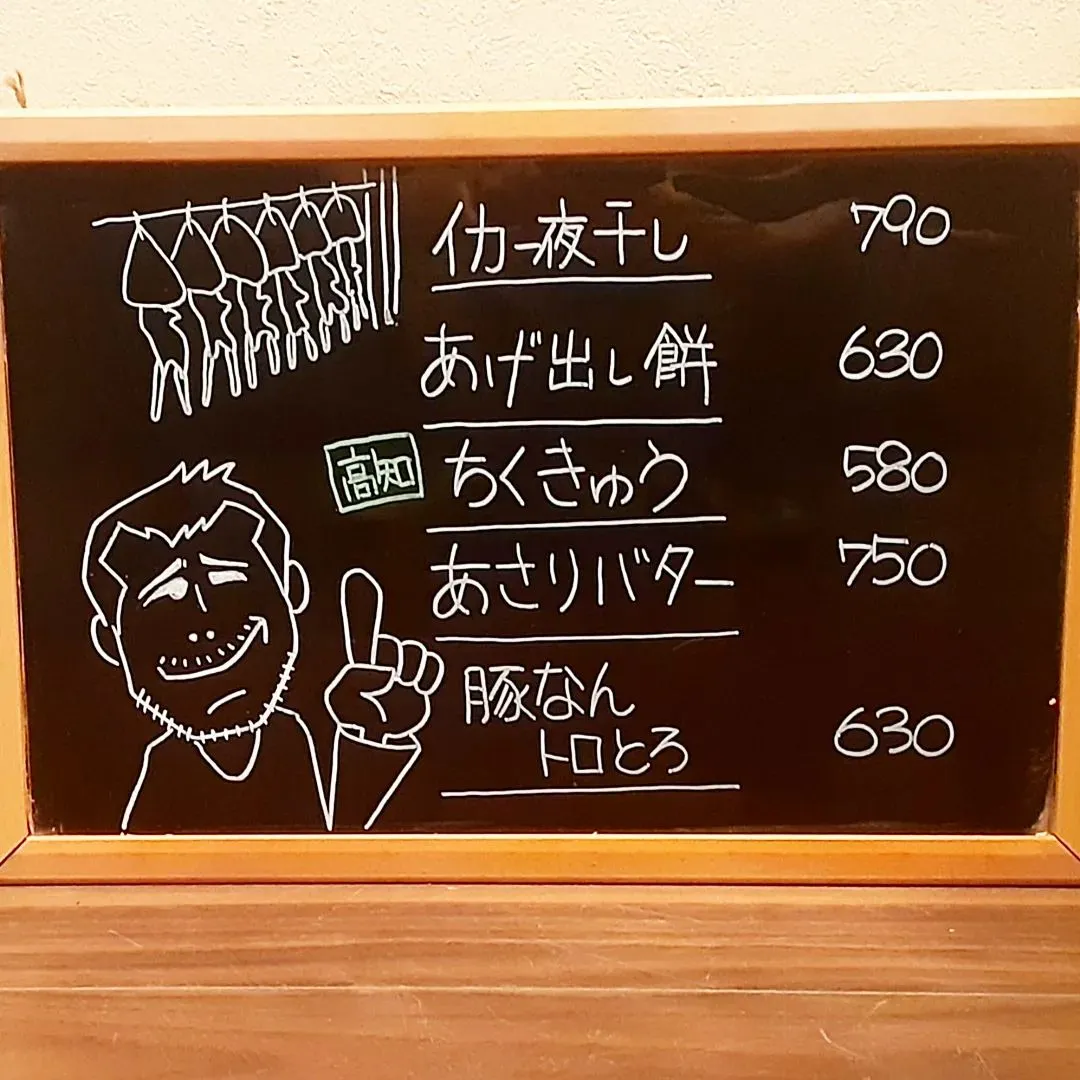 イカ一夜干し 790
あげ出し餅 630
高知 ちくきゅう 580
あさりバター 750
豚なん
トロとろ 630